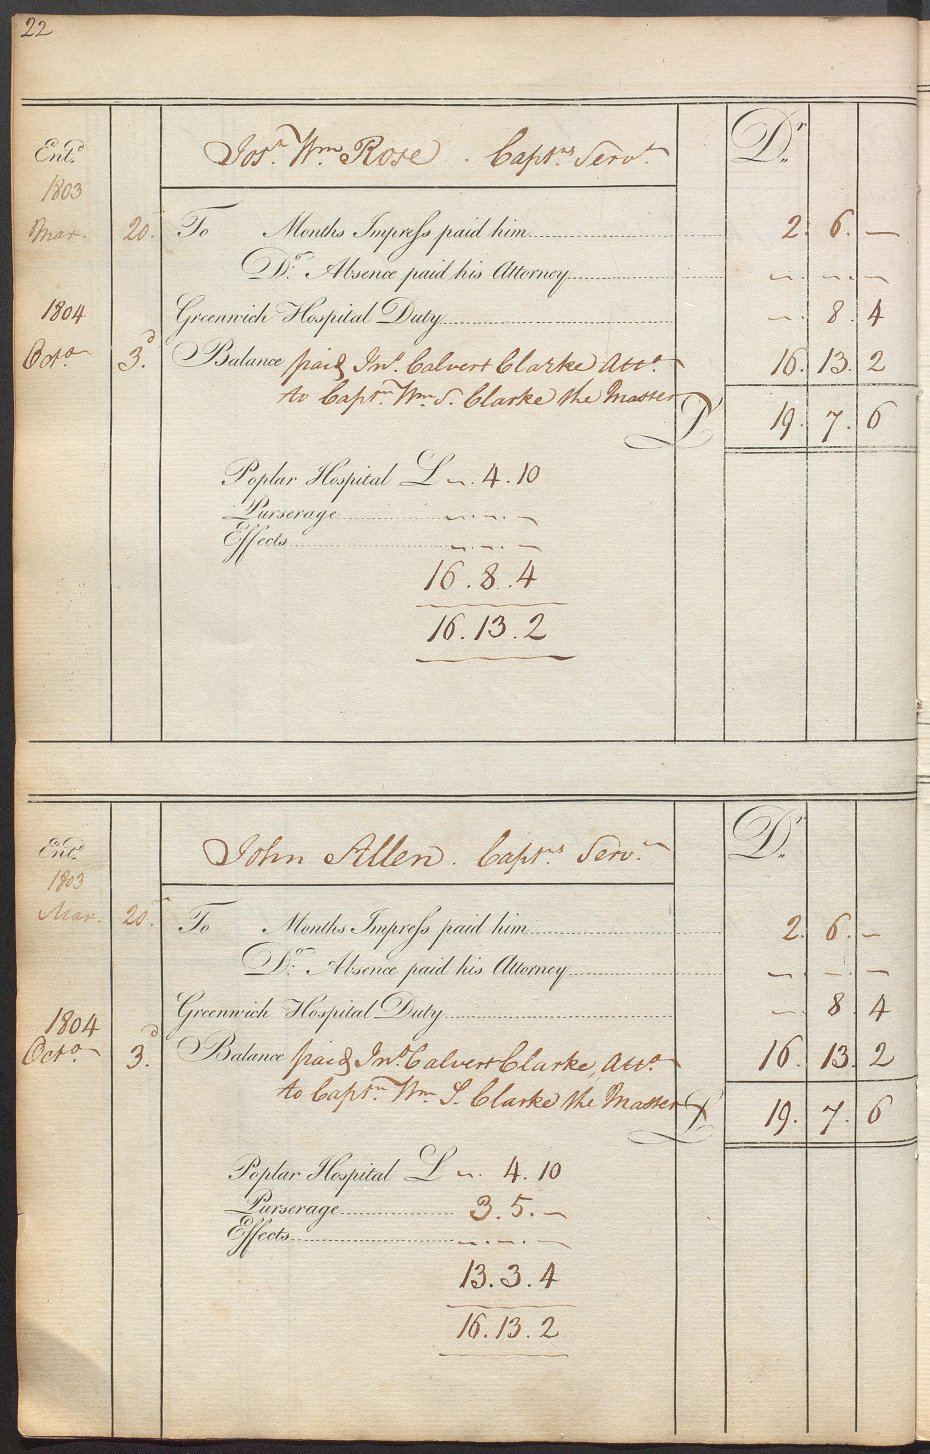 22
Ent.d Jos.h Wm Rose . Capt.ns Serv.t Dr.
1803
Mar. 20. To Months Impress paid him 2. 6. —
Do. Absence paid his Attorney — — —
1804 Greenwich Hospital Duty — . 8 . 4
Octo 3d. Balance paid Jno. Calvert Clarke Att.o 16. 13. 2
to Capt.n Wm S. Clarke the Master £ 19. 7. 6
Poplar Hospital £ — . 4 . 10
Purserage — . — . —
Effects — . — . —
16 . 8 . 4
16 . 13 . 2
Ent.d John Allen . Capt.ns Serv.t Dr.
1803
Mar. 20. To Months Impress paid him 2. 6. —
Do. Absence paid his Attorney — . — . —
Greenwich Hospital Duty — . 8 . 4
1804
Octo 3d. Balance paid Jno. Calvert Clarke, Att.o 16. 13. 2
to Capt.n Wm S. Clarke the Master £ 19. 7. 6
Poplar Hospital £ — . 4 . 10
Purserage 3 . 5 . —
Effects — . — . —
13 . 3 . 4
16 . 13 . 2